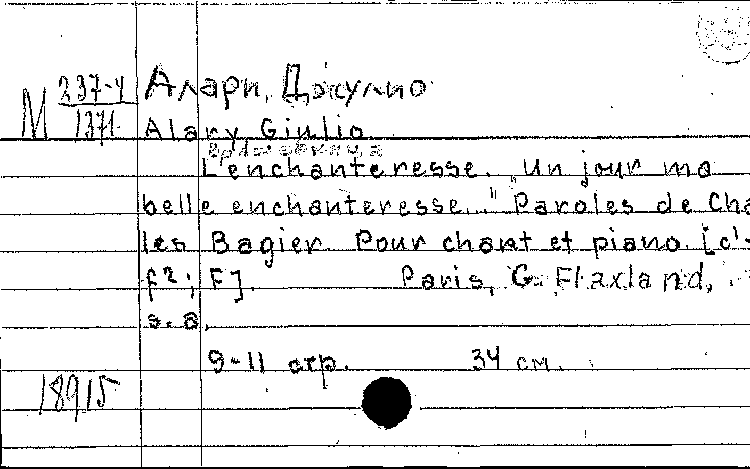 М 237-4/1371
Алари, Джулио
Alary Giulio
L'enchanteresse. "Un jour ma
belle enchanteresse..." Paroles de Cha
les Bagier. Pour chant et piano. [c'-
f²; F]. Paris, G. Flaxland,
s.a.
9-11 стр. 34 см.
18915